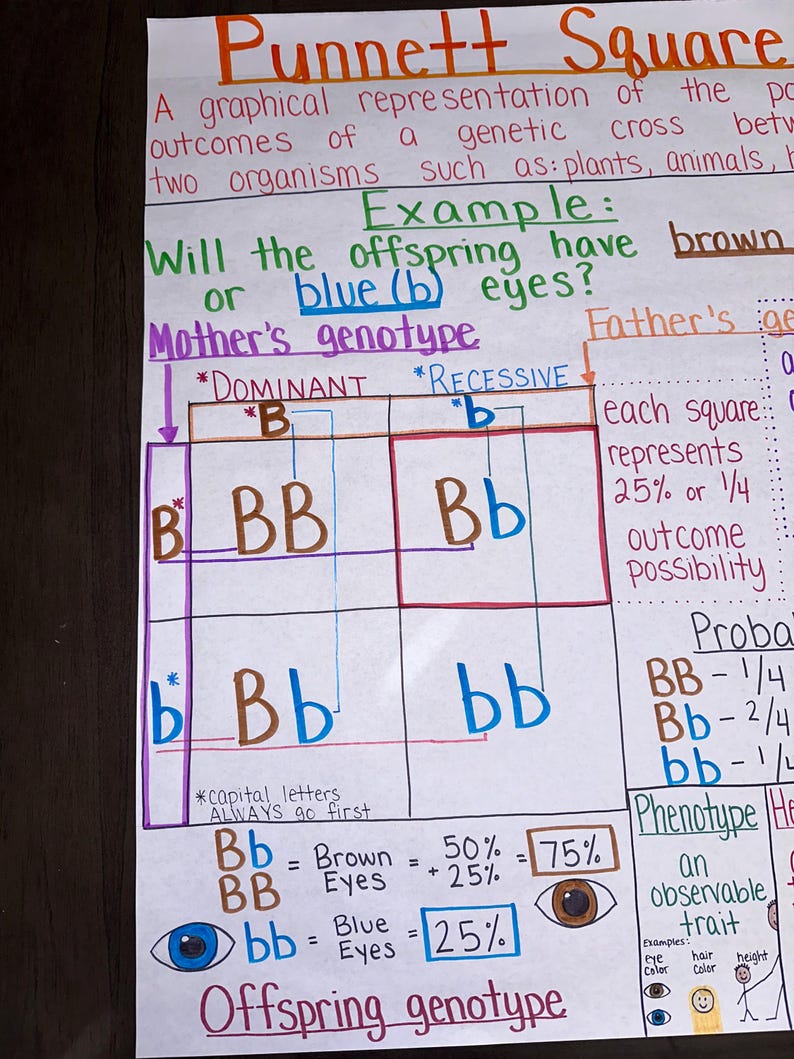 Punnett Square
A graphical representation of the
outcomes of a genetic cross
two organisms such as: plants, animals,
Example:
Will the offspring have brown
or blue (b) eyes?
Mother's genotype
Father's
*DOMINANT
*RECESSIVE
*B
*b
B*
BB
Bb
b*
Bb
bb
*capital letters
ALWAYS go first
each square
represents
25% or 1/4
outcome
possibility
BB - 1/4
Bb - 2/4
bb - 1/4
Bb
BB
= Brown
Eyes
= 50%
+ 25%
= 75%
bb = Blue
Eyes
= 25%
Offspring genotype
Phenotype
an
observable
trait
Examples:
eye
color
hair
color
height